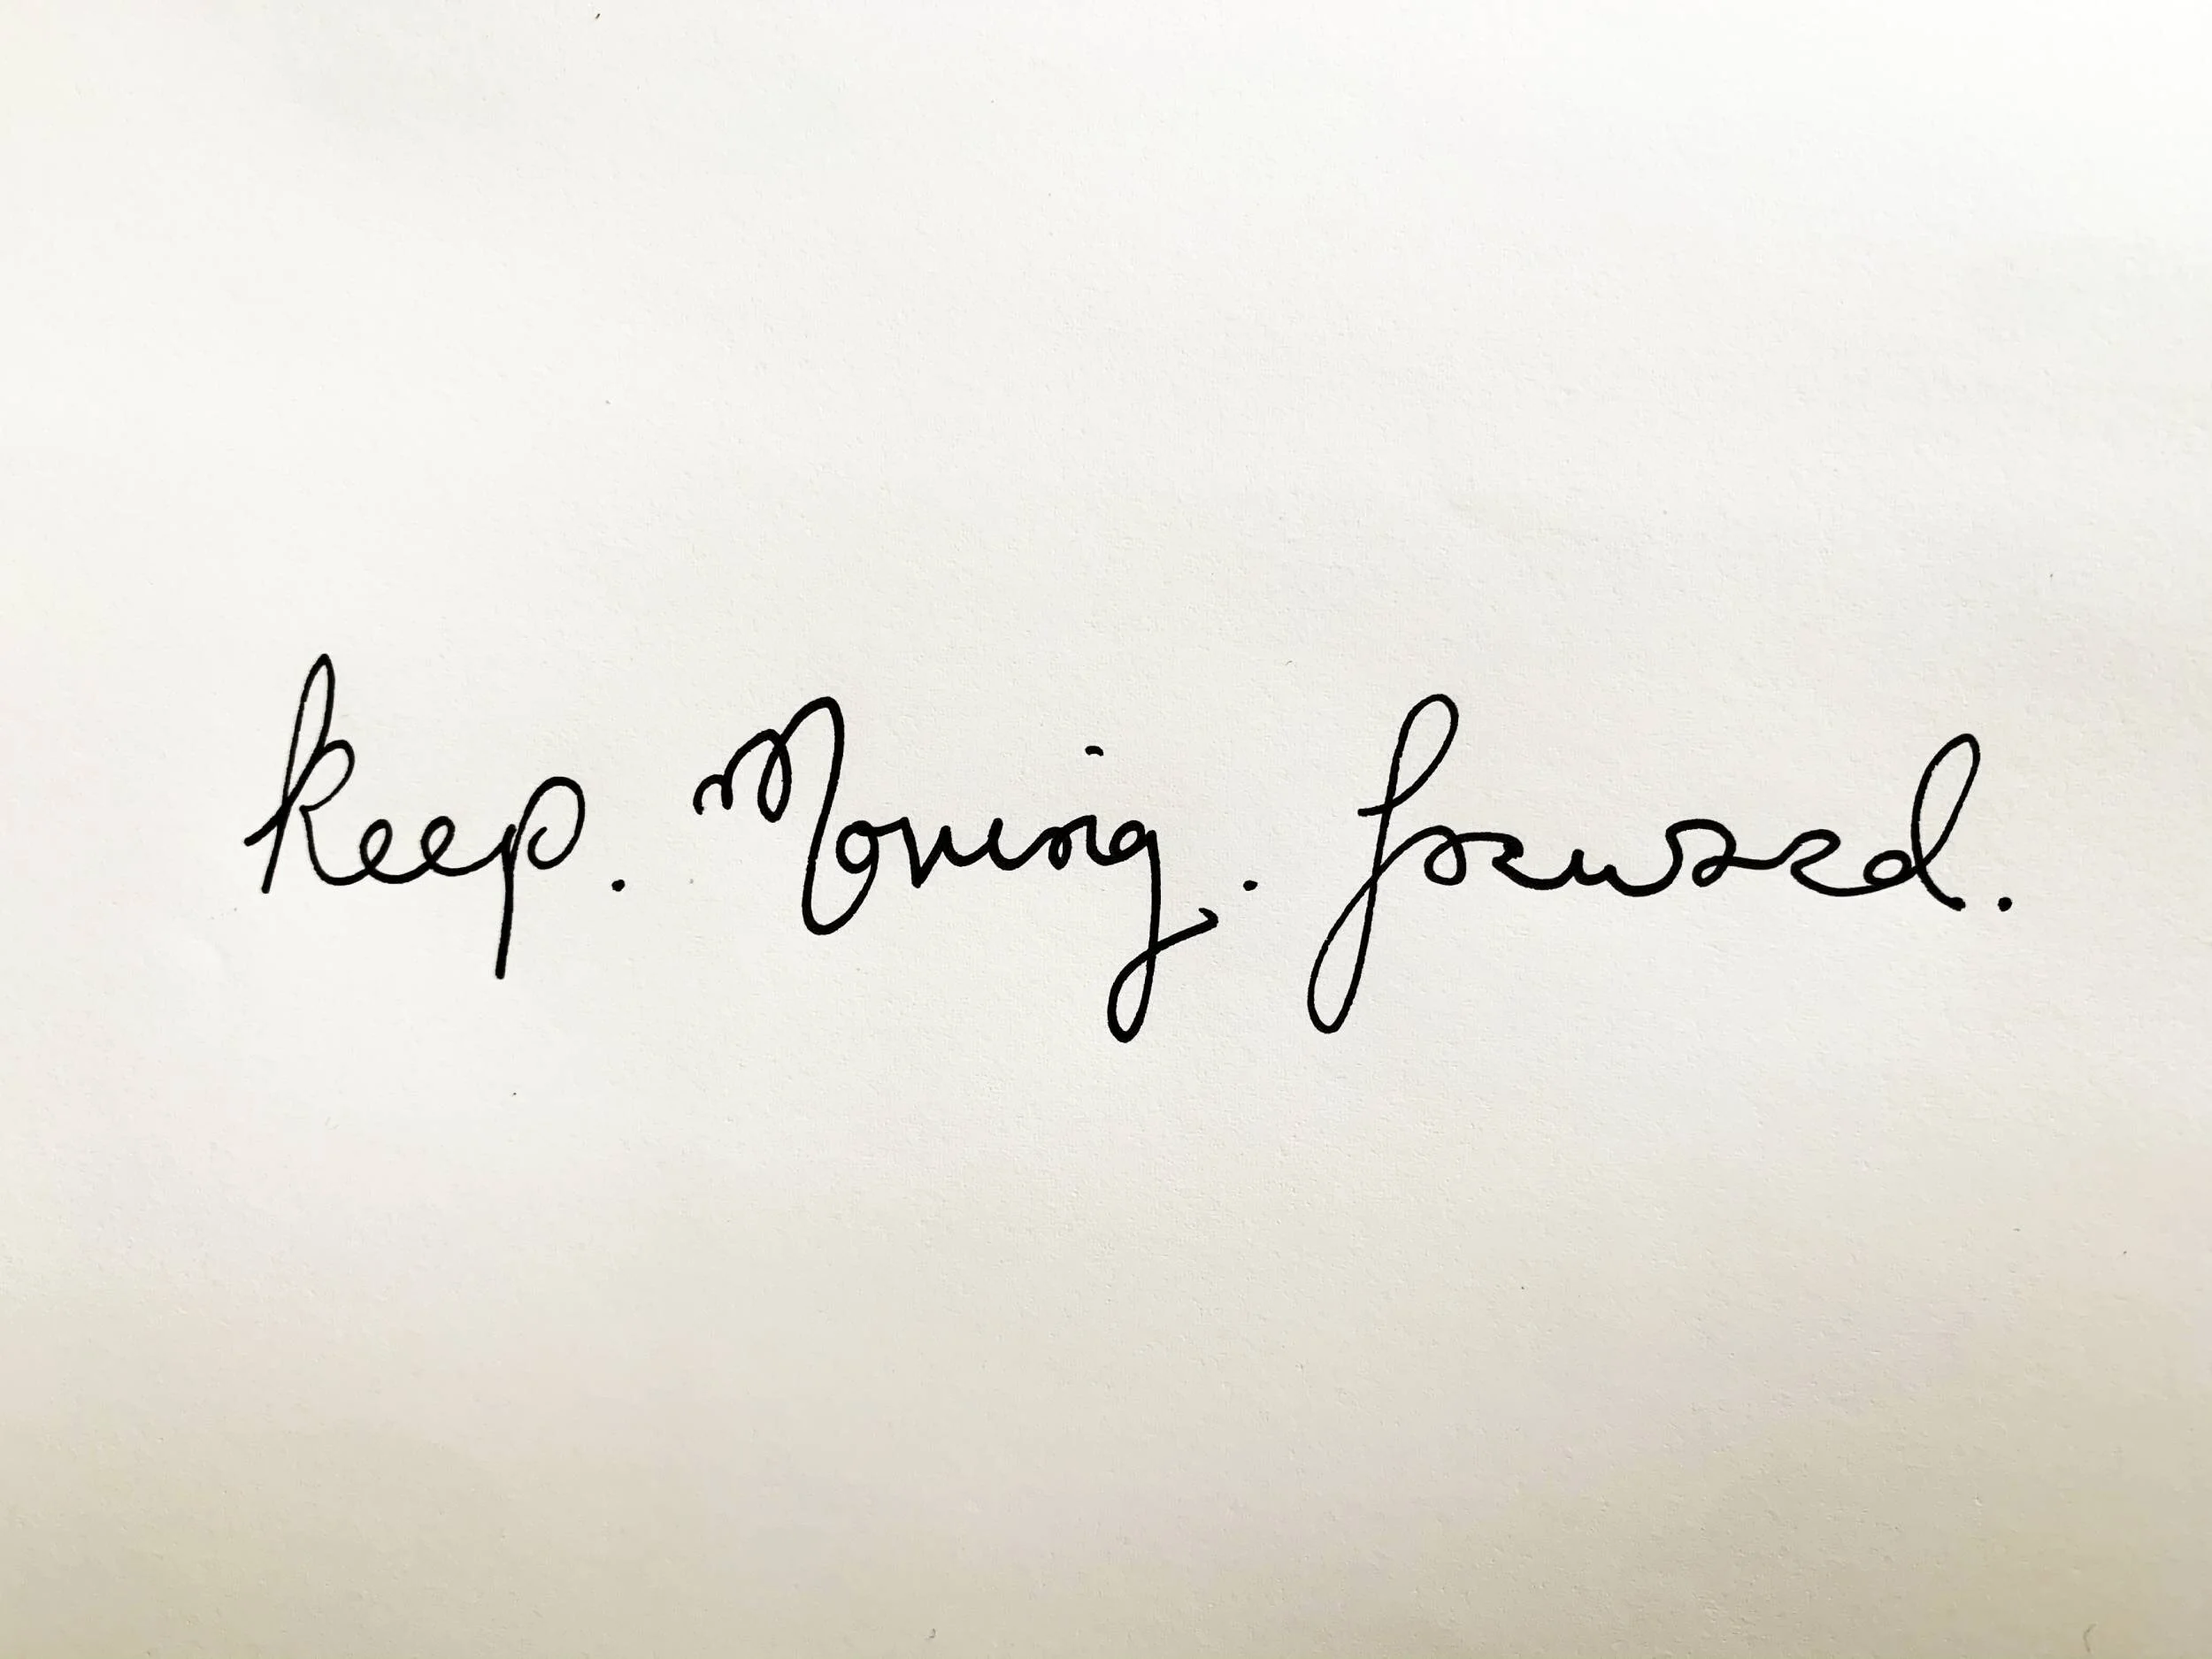 keep. Moving. forward.